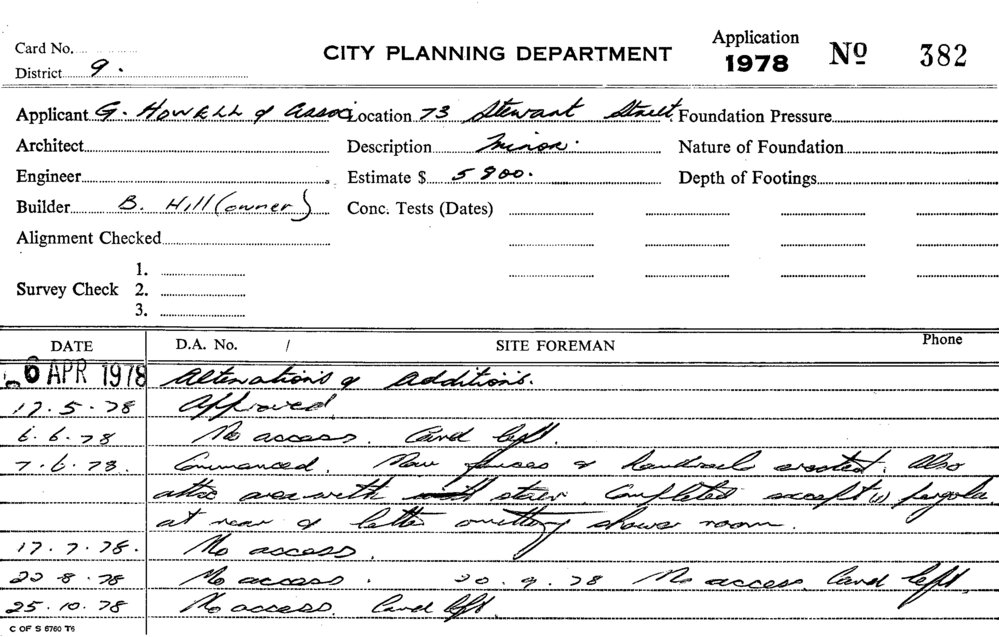 Card No.
CITY PLANNING DEPARTMENT
Application 1978 No 382
District 9.
Applicant G. Howell & Assoc Location 73 Stewart Street Foundation Pressure
Architect Description Minor. Nature of Foundation
Engineer Estimate $ 5800. Depth of Footings
Builder B. Hill (owner) Conc. Tests (Dates)
Alignment Checked
1.
Survey Check 2.
3.
DATE D.A. No. / SITE FOREMAN Phone
6 APR 1978 Alterations & Additions.
17.5.78 Approved
6.6.78 No access. Card left.
7.6.78. Commenced. New fences & handrail erected. Also
attic area with stair. Completed except (1) pergola
at rear & letter omitting shower room.
17.7.78. No access.
22.8.78 No access. 20.9.78 No access Card left.
25.10.78 No access. Card left.
C OF S 5760 T6